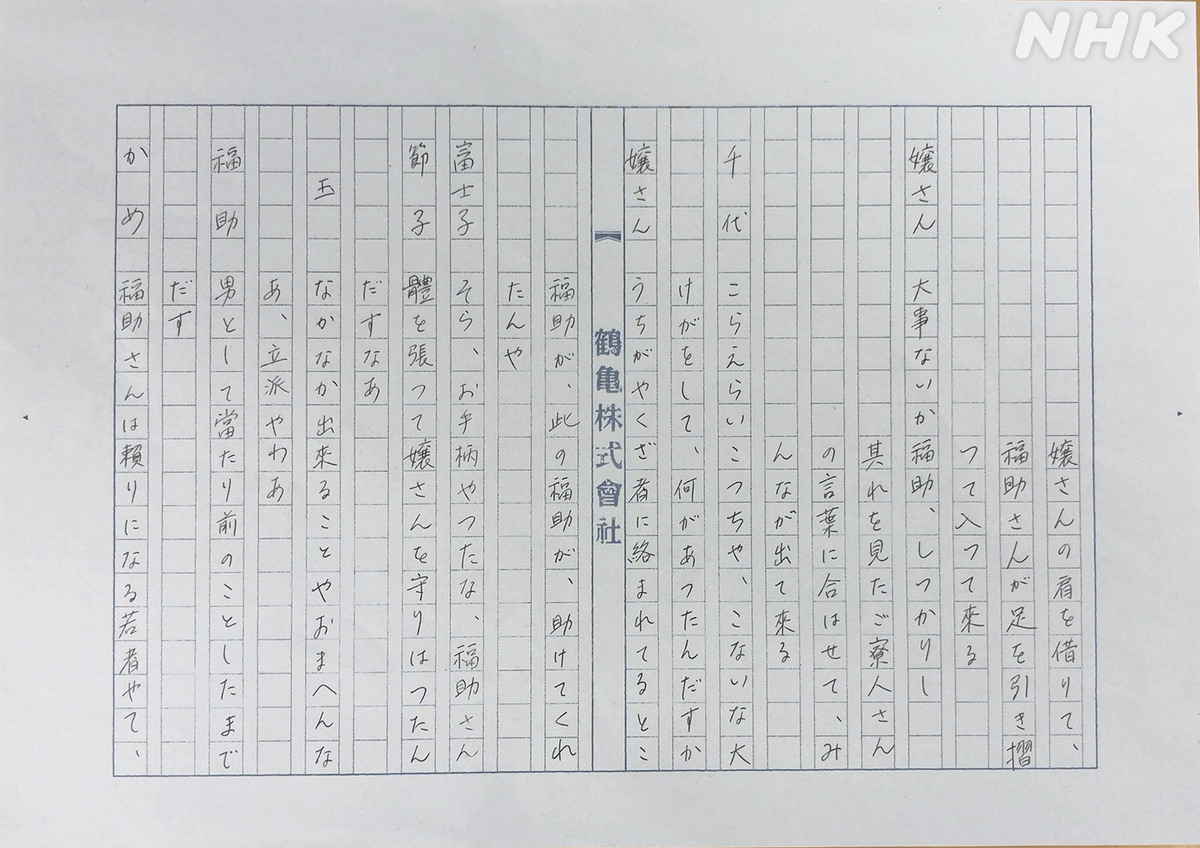 NHK
嬢さんの肩を借りて、
福助さんが足を引き摺
つて入つて來る
嬢さん 大事ないか福助、しつかりし
其れを見たご寮人さん
の言葉に合はせて、み
んなが出て來る
千代 こらえらいこつちや、こないな大
けがをして、何があつたんだすか
嬢さん うちがやくざ者に絡まれてるとこ
鶴亀株式會社
福助が、此の福助が、助けてくれ
たんや
富士子 そら、お手柄やつたな、福助さん
節子 體を張つて嬢さんを守りはつたん
だすなあ
玉 なかなか出來ることやおまへんな
あ、立派やわあ
福助 男として當たり前のことしたまで
だす
かめ 福助さんは頼りになる若者やて、